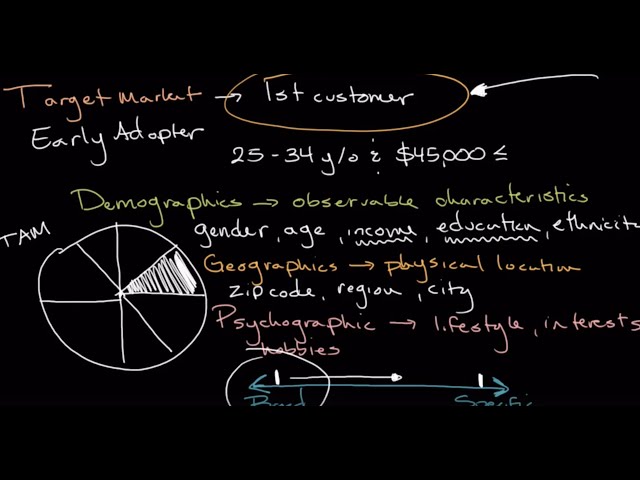 Target Market → 1st customer
Early Adopter
25-34 y/o & $45,000 ≤
Demographics → observable characteristics
TAM
gender, age, income, education, ethnicity
Geographics → physical location
zip code, region, city
Psychographic → lifestyle, interests
hobbies
Broad Specific